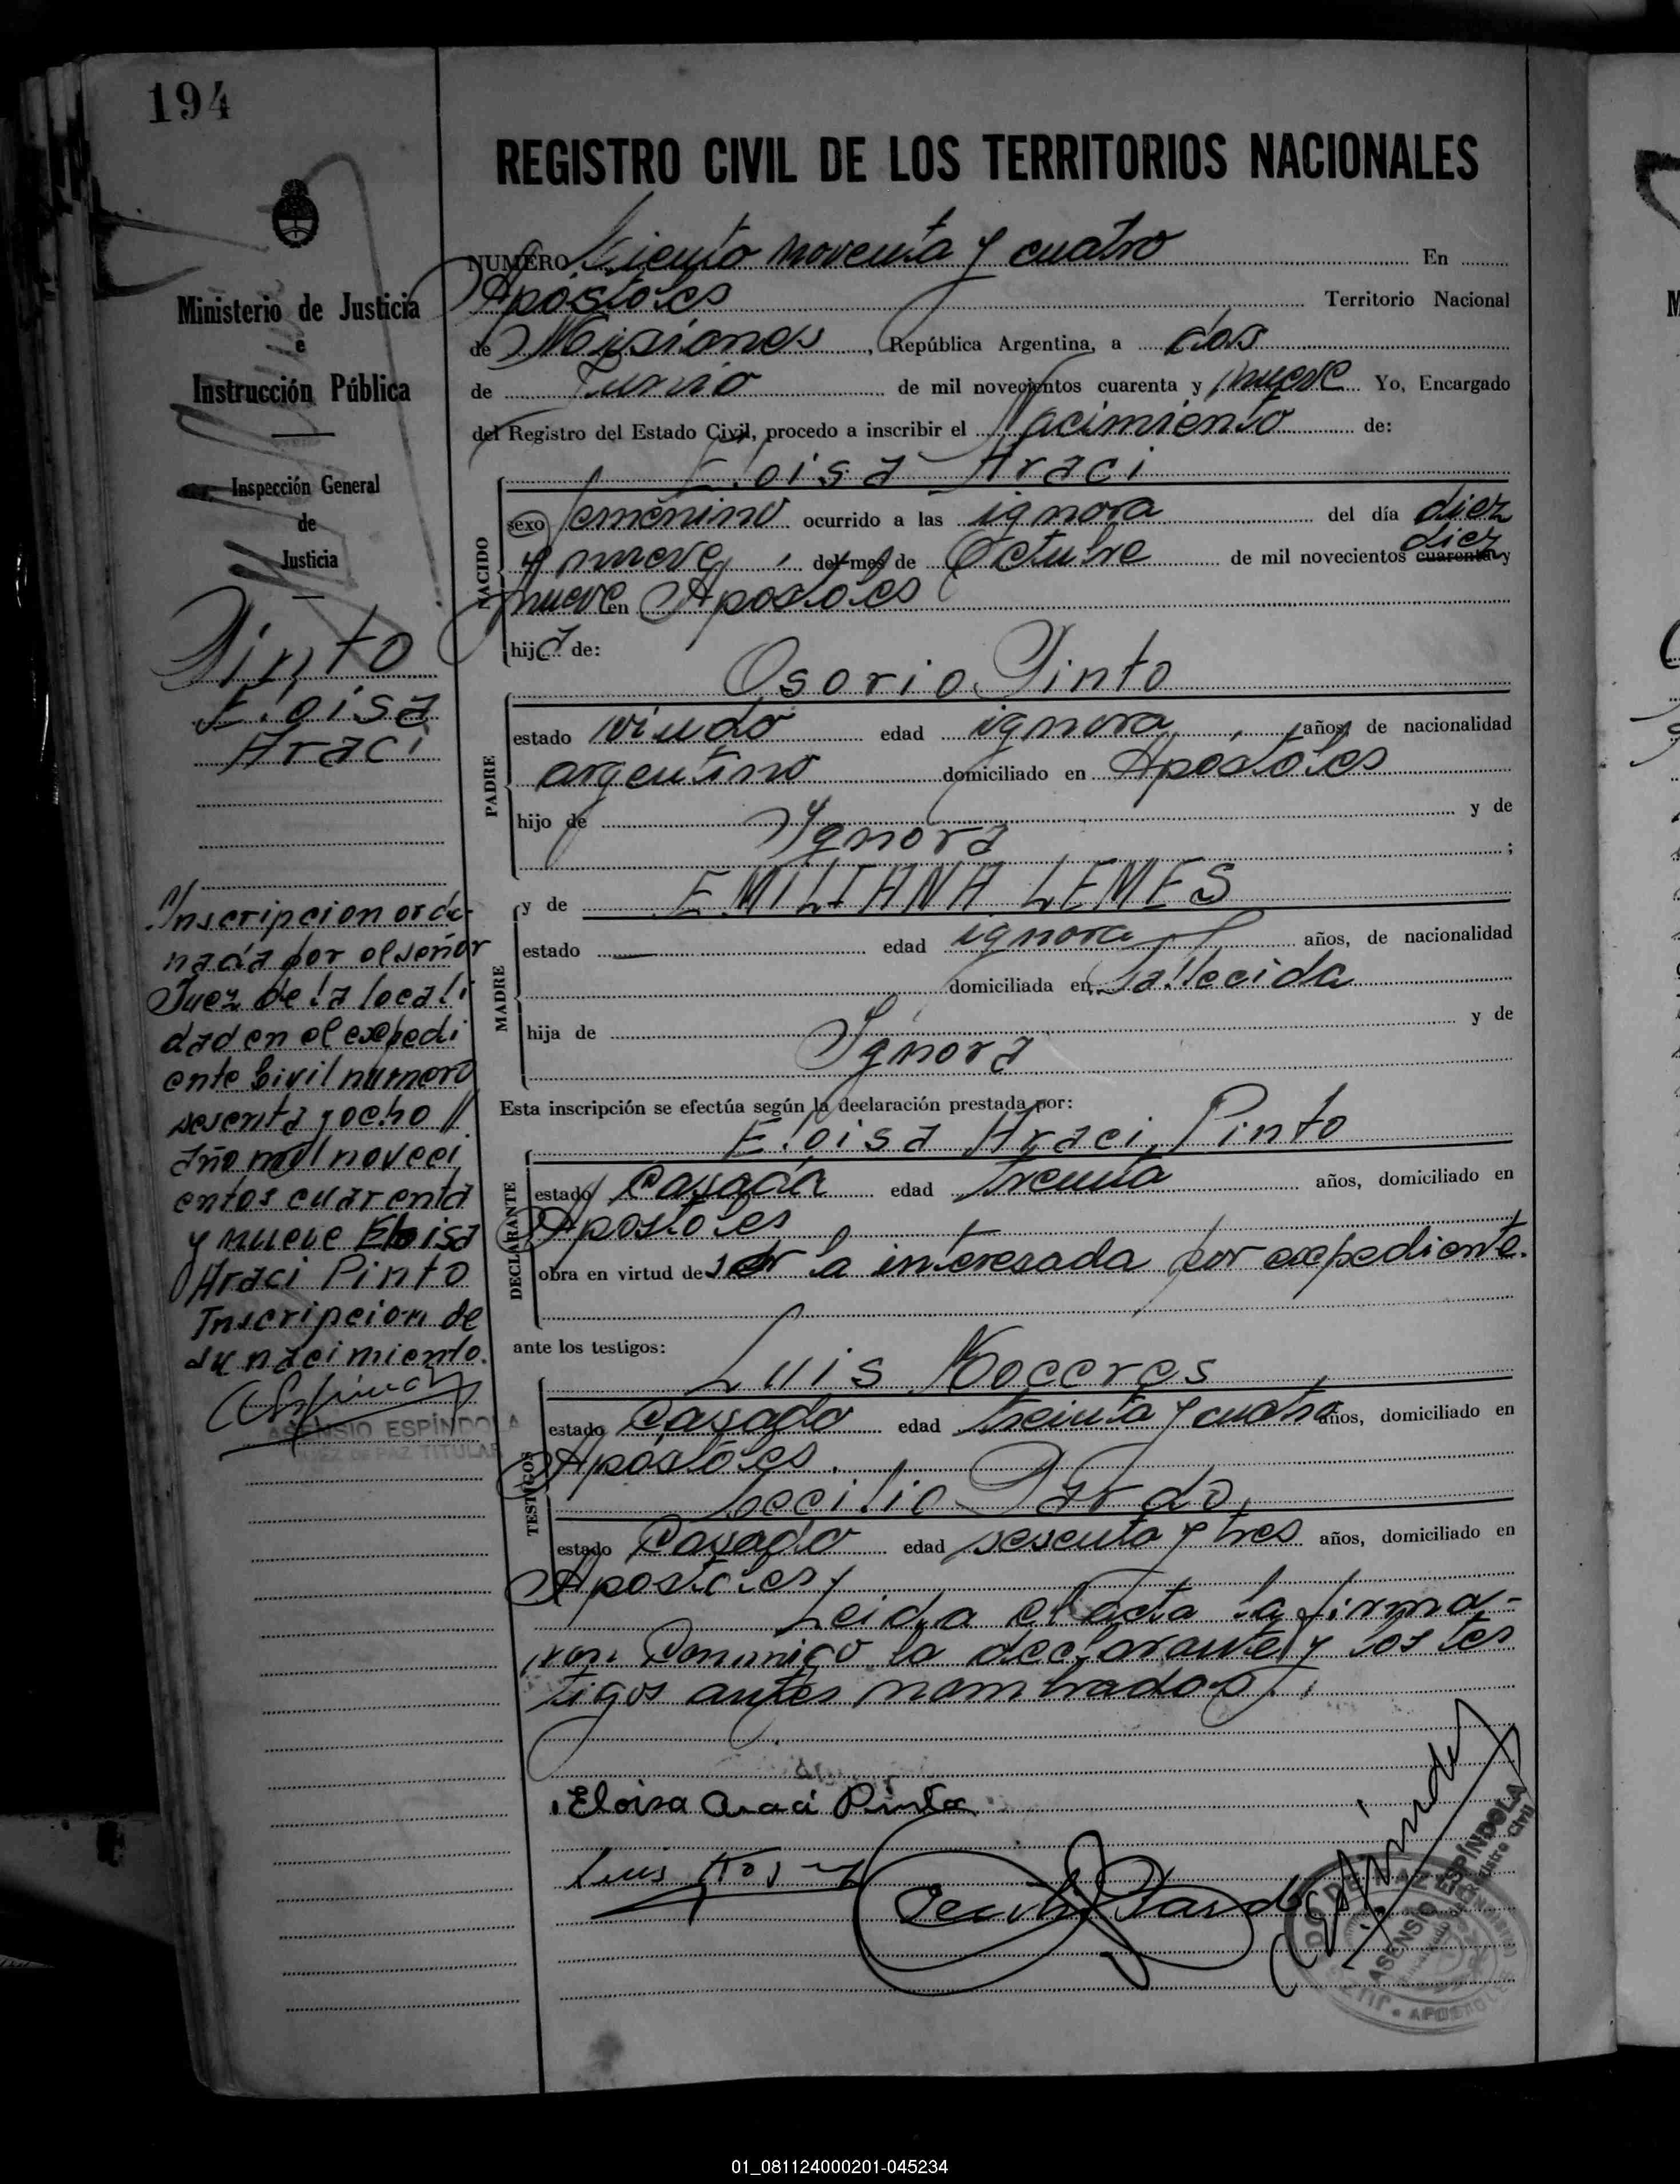 194
REGISTRO CIVIL DE LOS TERRITORIOS NACIONALES
NUMERO Ciento noventa y cuatro En
Apóstoles Territorio Nacional
de Misiones, República Argentina, a dos
de Junio de mil novecientos cuarenta y nueve Yo, Encargado
del Registro del Estado Civil, procedo a inscribir el Nacimiento de:
Eloisa Araci
NACIDO
sexo femenino ocurrido a las ignora del día diez
y nueve del mes de Octubre de mil novecientos cuarenta y diez
nueve en Apostoles
hija de:
Osorio Pinto
PADRE
estado viudo edad ignora años, de nacionalidad
argentino domiciliado en Apóstoles
hijo de Ygnora y de
;
y de EMILIANA LEMES
MADRE
estado edad ignora años, de nacionalidad
domiciliada en fallecida
hija de Ygnora y de
Esta inscripción se efectúa según la declaración prestada por:
Eloisa Araci Pinto
DECLARANTE
estado Casada edad treinta años, domiciliado en
Apóstoles
obra en virtud de ser la interesada por expediente.
ante los testigos:
Luis
TESTIGOS
estado Casado edad treinta y cuatro años, domiciliado en
Apóstoles
Cecilio Pardo
estado Casado edad sesenta y tres años, domiciliado en
Apostoles
Leida el acta la firma-
ron conmigo la declarante y los tes
tigos antes nombrados
Eloisa Araci Pinto
Luis
Cecilio Pardo
ASENSIO ESPÍNDOLA
Ministerio de Justicia
e
Instrucción Pública
Inspección General
de
Justicia
Pinto
Eloisa
Araci
Inscripcion orde-
nada por el señor
Juez de la locali
dad en el expedi
ente Civil numero
sesenta y ocho
año mil noveci
entos cuarenta
y nueve Eloisa
Araci Pinto
Inscripcion de
su nacimiento.
ASENSIO ESPÍNDOLA
JUEZ DE PAZ TITULAR
01_081124000201-045234